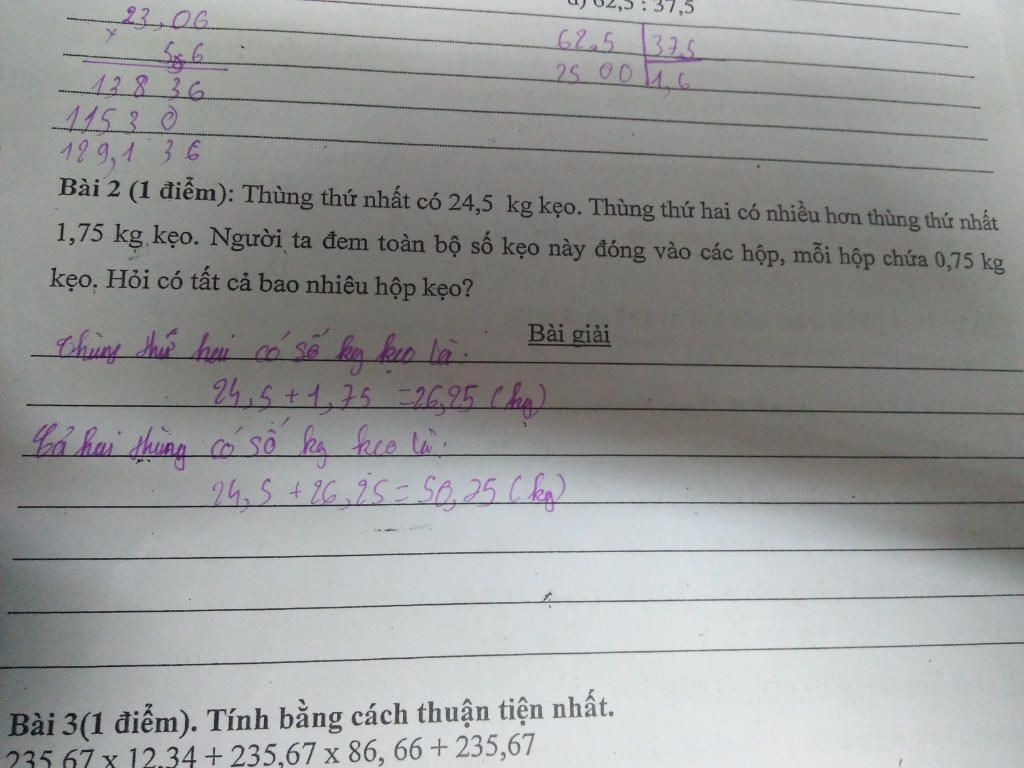 d) 62,5 : 37,5
23,06
x
5,6
138 36
62,5 37,5
25 00 1,6
1153 0
129,1 36
Bài 2 (1 điểm): Thùng thứ nhất có 24,5 kg kẹo. Thùng thứ hai có nhiều hơn thùng thứ nhất
1,75 kg kẹo. Người ta đem toàn bộ số kẹo này đóng vào các hộp, mỗi hộp chứa 0,75 kg
kẹo. Hỏi có tất cả bao nhiêu hộp kẹo?
Bài giải
Thùng thứ hai có số kg kẹo là:
24,5 + 1,75 = 26,25 (kg)
Cả hai thùng có số kg kẹo là:
24,5 + 26,25 = 50,75 (kg)
Bài 3(1 điểm). Tính bằng cách thuận tiện nhất.
235,67 x 12,34 + 235,67 x 86, 66 + 235,67